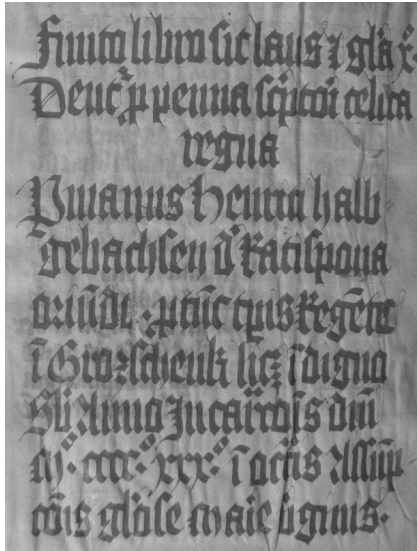 Finito libro sit laus ⁊ gl̄a x̄
Dent᷑ p penna sc̄ptori celica
regna
Per manus Heinrici halb
gebachsen d' Ratispona
oriūdi · p tūc tp̄is Regēte
ī Grozschenk licz īdigno
Sb Anno Incar̄cōis dn̄i
M° cccc° xxx° ī octīs Assūp
cōis gl̄ose Marie ūginis·